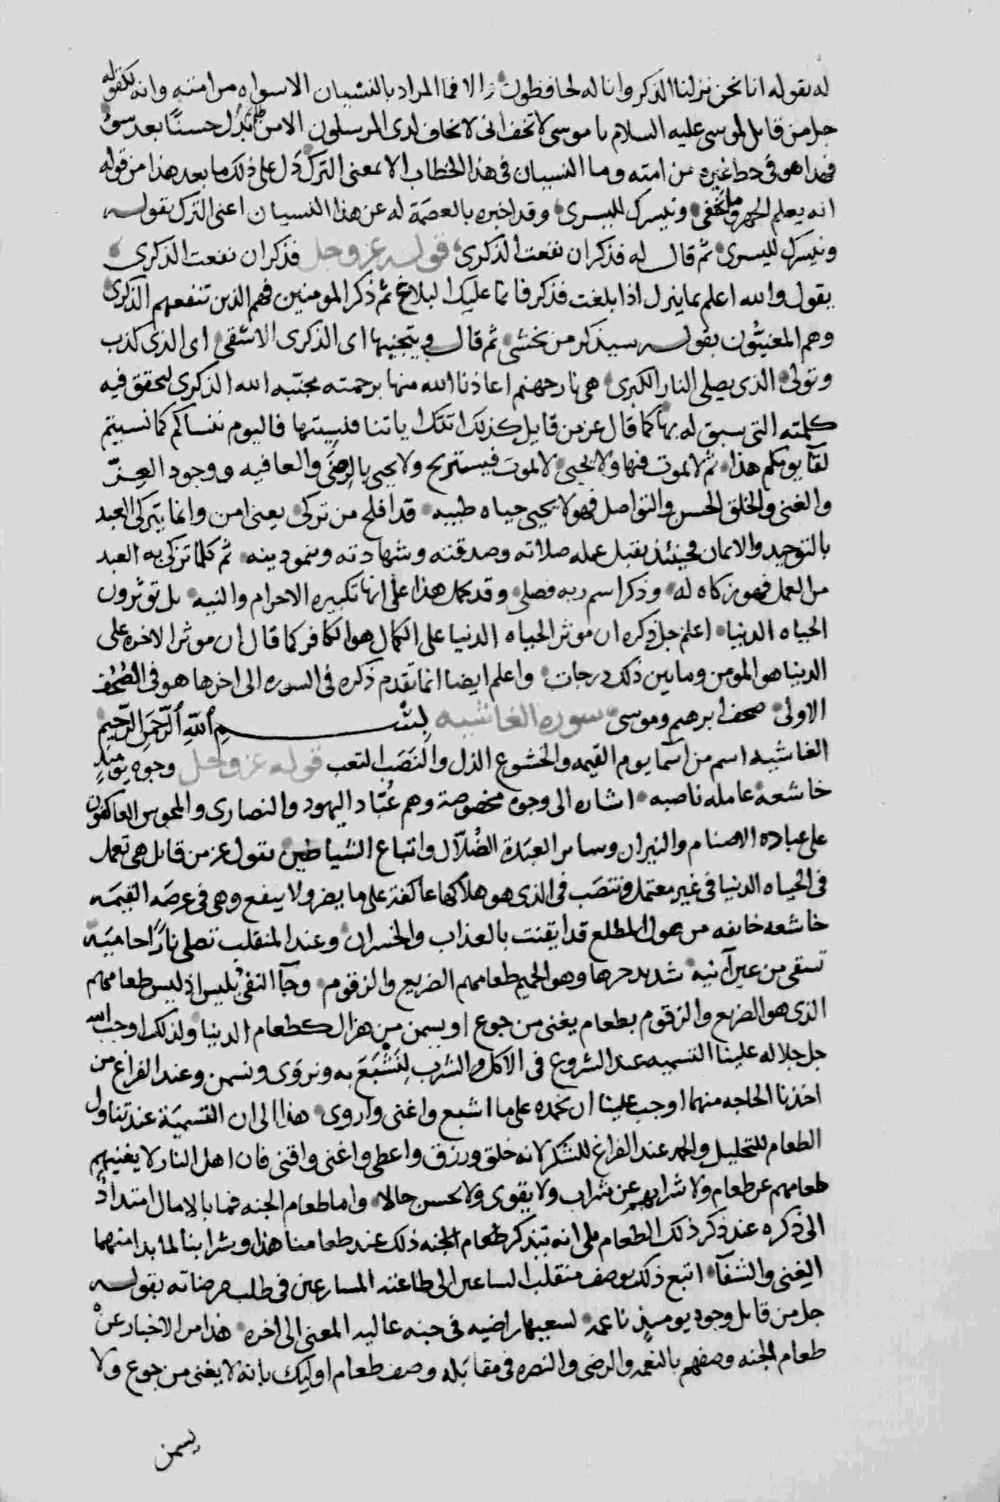 له بقوله انا نحن نزلنا الذكر وانا له لحافظون والا فما المراد بالنسيان الاسواه من امته وانه كقوله
جل من قايل لموسى عليه السلام يا موسى لا تخف انى لا يخاف لدى المرسلون الا من ظلم ثم بدل حسنًا بعد سوء
فهذا هو فى حط غيره من امته وما النسيان فى هذا الخطاب الا بمعنى الترك دل على ذلك ما بعد هذا من قوله
انه يعلم الجهر وما يخفى ونيسرك لليسرى وقد اخبره بالعصمة له عن هذا النسيان اعنى الترك بقوله
ونيسرك لليسرى ثم قال له فذكر ان نفعت الذكرى قوله عز وجل فذكر ان نفعت الذكرى
يقول والله اعلم بما ينزل اذا بلغت فذكر فانما عليك البلاغ ثم ذكر المومنين فهم الذين تنفعهم الذكرى
وهم المعنيّون بقوله سيذكر من يخشى ثم قال ويتجنبها اى الذكرى الاشقى اى الذى كذب
وتولى الذى يصلى النار الكبرى هى نار جهنم اعاذنا الله منها برحمته مجنّبه الله الذكرى لتحقق فيه
كلمته التى سبق له بها كما قال عز من قايل كذلك اتتك اياتنا فنسيتها فاليوم ننساكم كما نسيتم
لقآ يومكم هذا ثم لا يموت فيها ولا يحيى لا يموت فيستريح ولا يحيى بالرضَى والعافيه ووجود العِزّ
والغنى والخلق الحسن والتواصل فهو لا يحيى حياه طيبه قد افلح من تزكى يعنى امن وانما يتزكى العبد
بالتوحيد والايمان فحينئذ يقبل عمله صلاته وصدقته وشهادته وينمو دينه ثم كلما تزكى به العبد
من العمل فهو زكاه له وذكر اسم ربه فصلى وقد يحمل هذا على انها تكبيره الاحرام والنيه بل توثرون
الحياه الدنيا اعلم جل ذكره ان موثر الحياه الدنيا على الكمال هو الكافر كما قال ان موثر الاخره على
الدنيا هو المومن وما بين ذلك درجات واعلم ايضا انما تقدم ذكره فى السوره الى اخرها هو فى الصُحُف
الاولى صحف ابرهيم وموسى سوره الغاشيه بِسْمِ اللهِ الرَّحمَنِ الرَّحِيمِ
الغاشيه اسم من اسما يوم القيمه والخشوع الذل والنَصَب التعب قوله عز وجل وجوه يوميذٍ
خاشعه عامله ناصبه اشاره الى وجوه مخصوصة وهم عُبّاد اليهود والنصارى والمجوس العاكفون
على عباده الاصنام والنيران وساير العبَدَة الضُلّال واتباع الشياطين يقول عز من قايل هى تعمل
فى الحياه الدنيا فى غير معتمل وتنصَب فى الذى هو هلاكها عاكفة على ما يضر ولا ينفع وهى فى عرصَه القيمَه
خاشعه خايفه من هول المطلع قد ايقنت بالعذاب والخسران وعند المنقلب تصلى نارًا حاميَه
تسقى من عين آنيه شديد حرها وهو الحميم طعامهم الضريع والزقوم وجآ النفى بليس اذ ليس طعامهم
الذى هو الضريع والزقوم بطعام يغنى من جوع او يسمن من هزال كطعام الدنيا ولذلك اوجب الله
جل جلاله علينا التسميه عند الشروع فى الاكل والشرب لِنَشْبَعَ به ونروَى ونسمن وعند الفراغ من
اخذنا الحاجه منهما اوجب علينا ان نحمده على ما اشبع واغنى واروى هذا الى ان التسميَة عند تناول
الطعام للتحليل والحمد عند الفراغ للشكر لانه خلق ورزق واعطى واغنى واقنى فان اهل النار لا يغنيهم
طعامهم عن طعام ولا شرابهم عن شراب ولا يقوى ولا يحسن حالا واما طعام الجنه فما بالامال امتدادٌ
الى ذكره عند ذكر ذلك الطعام بلى انه يتذكر طعام الجنه ذلك عند طعامنا هذا وشرابنا لما بدا منهما
الغِنى والشفآ اتبع ذلك بوصف منقلَب الساعين الى طاعته المسارعين فى طلب مرضاته بقوله
جل من قايل وجوه يوميذٍ ناعمه لسعيها راضيه فى جنه عاليه المعنى الى اخره هذا من الاخبار عن
طعام الجنه وصفهم بالنعمه والرضى والنضره فى مقابله وصف طعام اوليك بانه لا يغنى من جوع ولا
يسمن